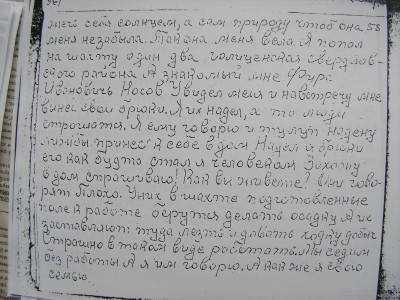 меге себя солнцем, а сам природу чтоб она 5з
меня незабыла. Такона меня вела. Я попал
на шахту один два голицинская свердлов-
ского района А знакомый мне Фирс
Иванович Носов Увидел меня и навстречу мне
вынес свои брюки. Я их надел, а то люди
страшатся. Я ему говорю и тулуп надену
лижбы принес к себе в дом Надел я брюки
его как будто стал я человеком Захожу
в дом спрашиваю! Как вы живете? Они гово-
рят Плохо. У них в шахте подготовленные
поле к работе берутся делать осадку А их
заставляют туда лезть и давать ходку добыч
Страшно в таком виде работать. Мы сидим
без работы А я им говорю. А как же я свою
семью